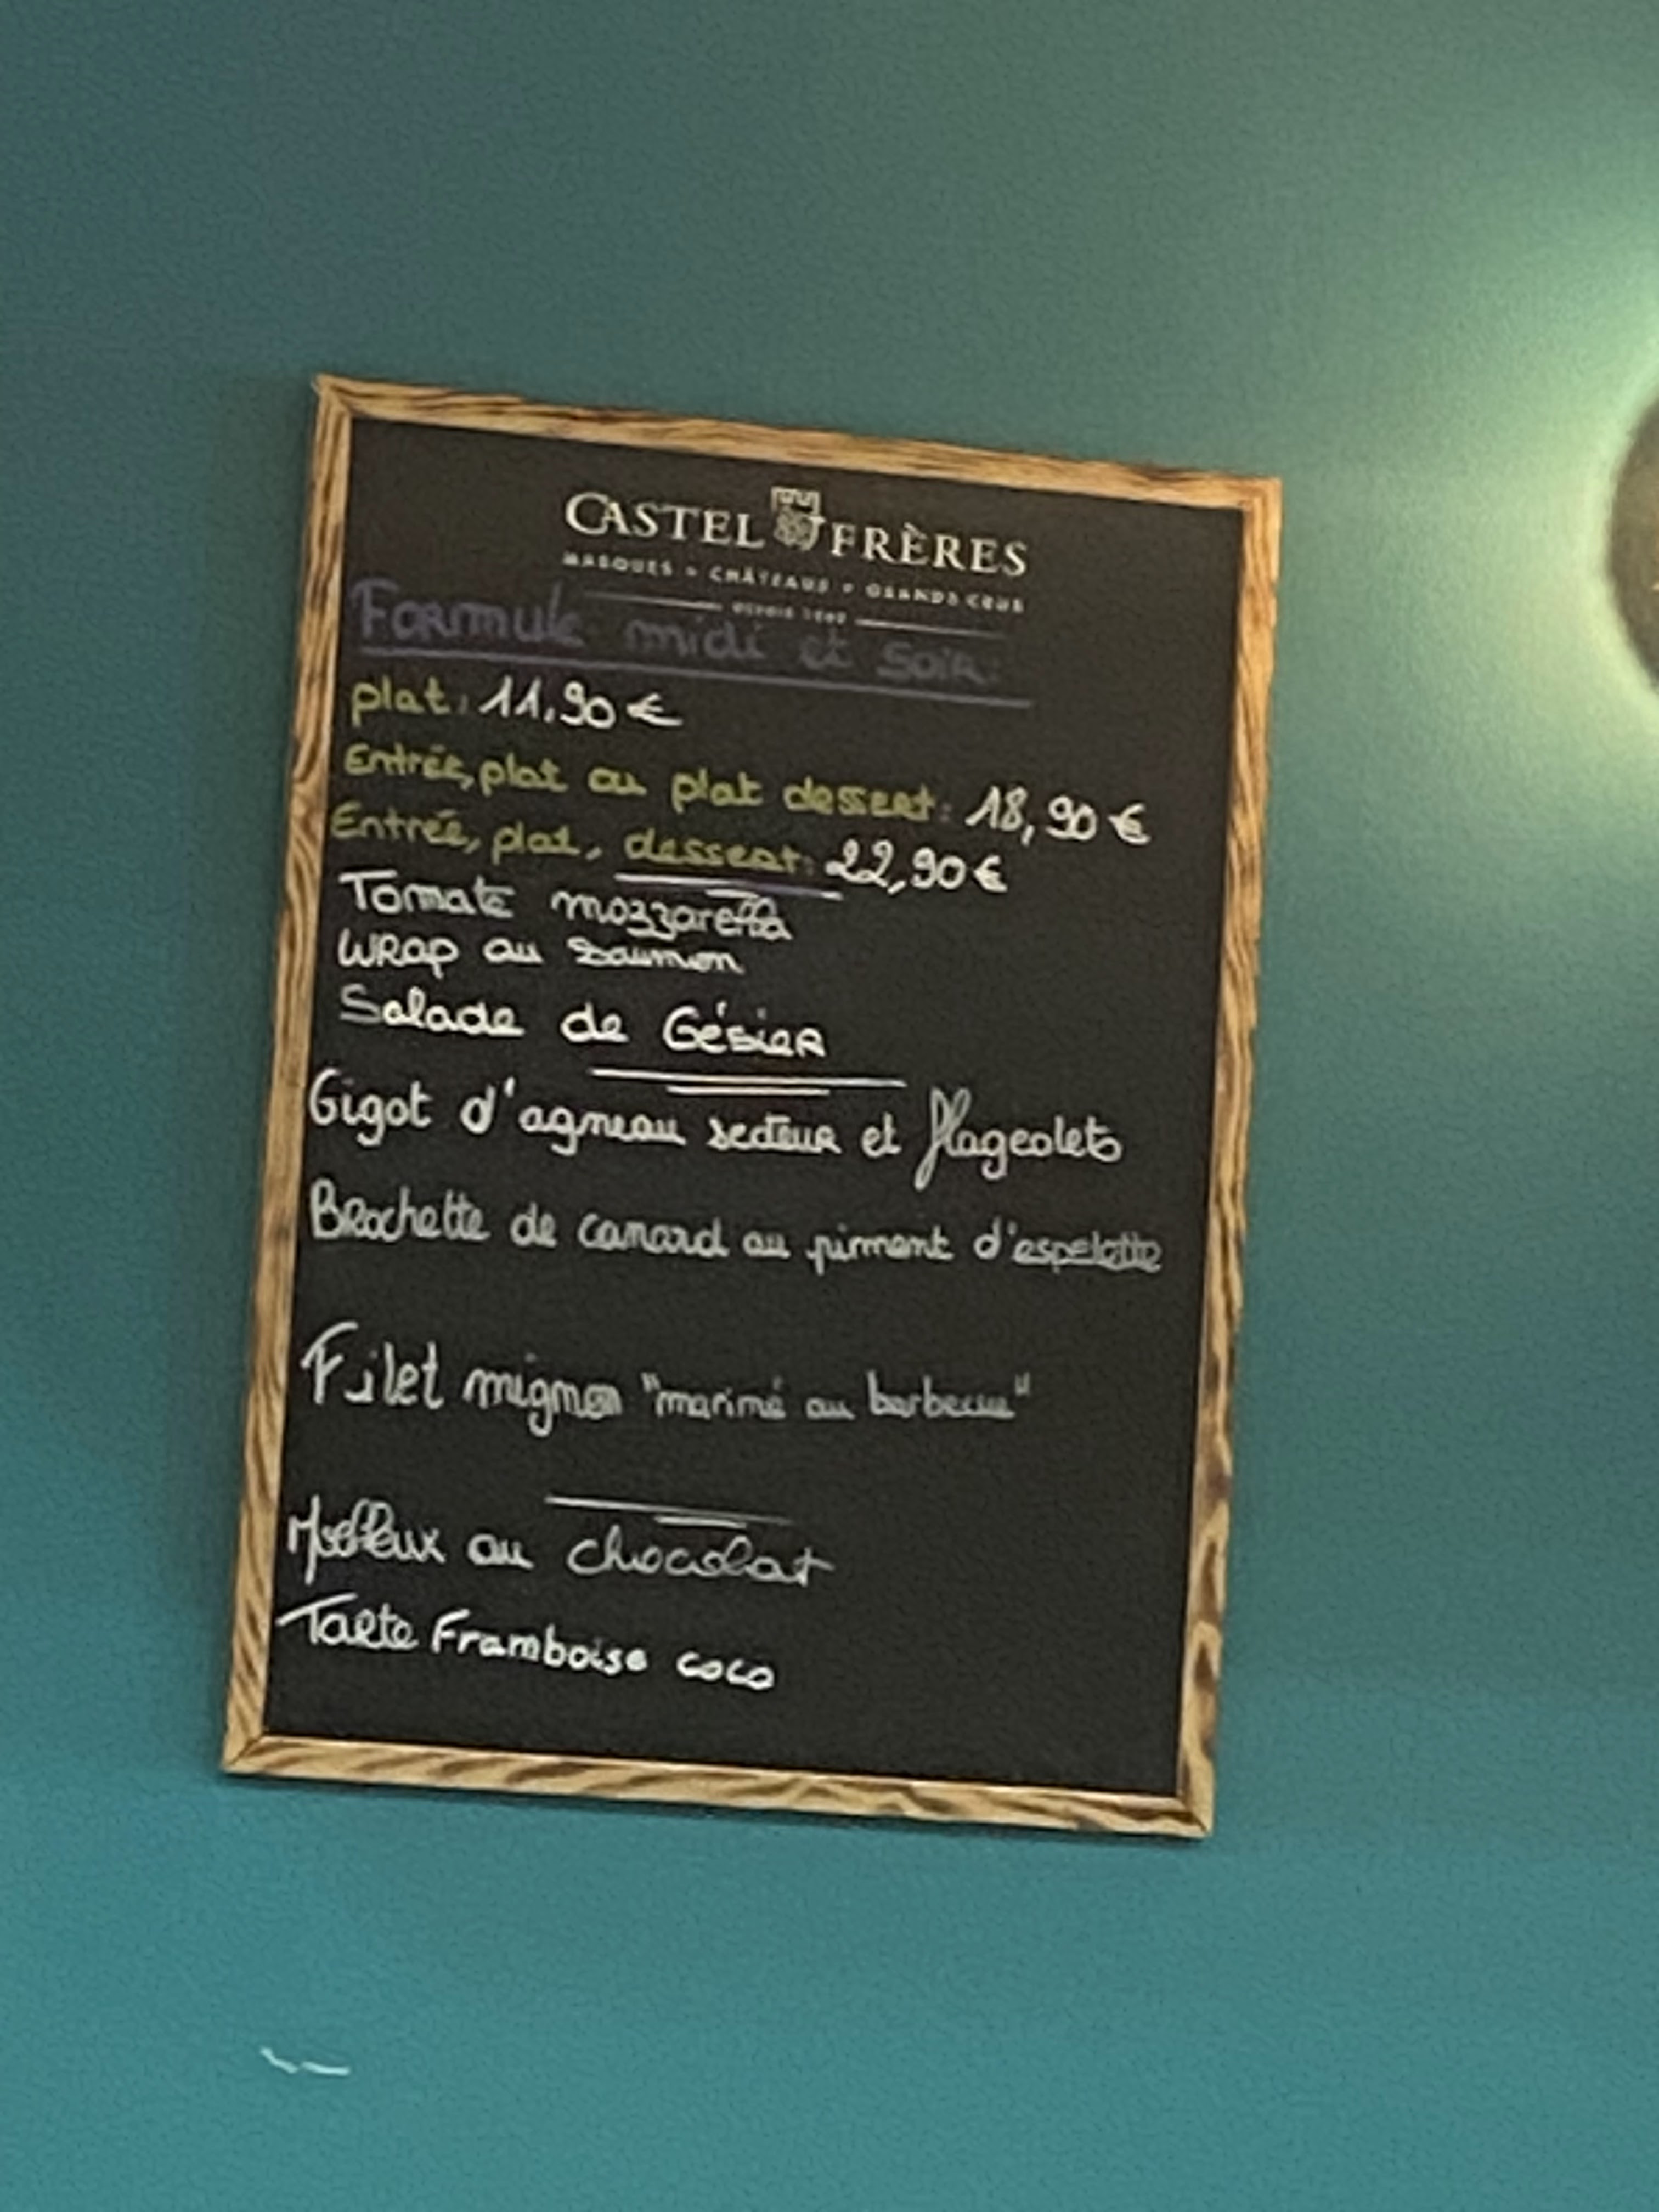 CASTEL FRÈRES
MARQUES • CHÂTEAUX • GRANDS CRUS
DEPUIS
Formule midi et soir:
plat: 11,90 €
Entrée, plat ou plat dessert: 18,90 €
Entrée, plat, dessert: 22,90 €
Tomate mozzarella
Wrap au Saumon
Salade de Gésier
Gigot d'agneau secteur et flageolets
Brochette de canard au piment d'espelette
Filet mignon "mariné au barbecue"
Moelleux au chocolat
Tarte Framboise coco